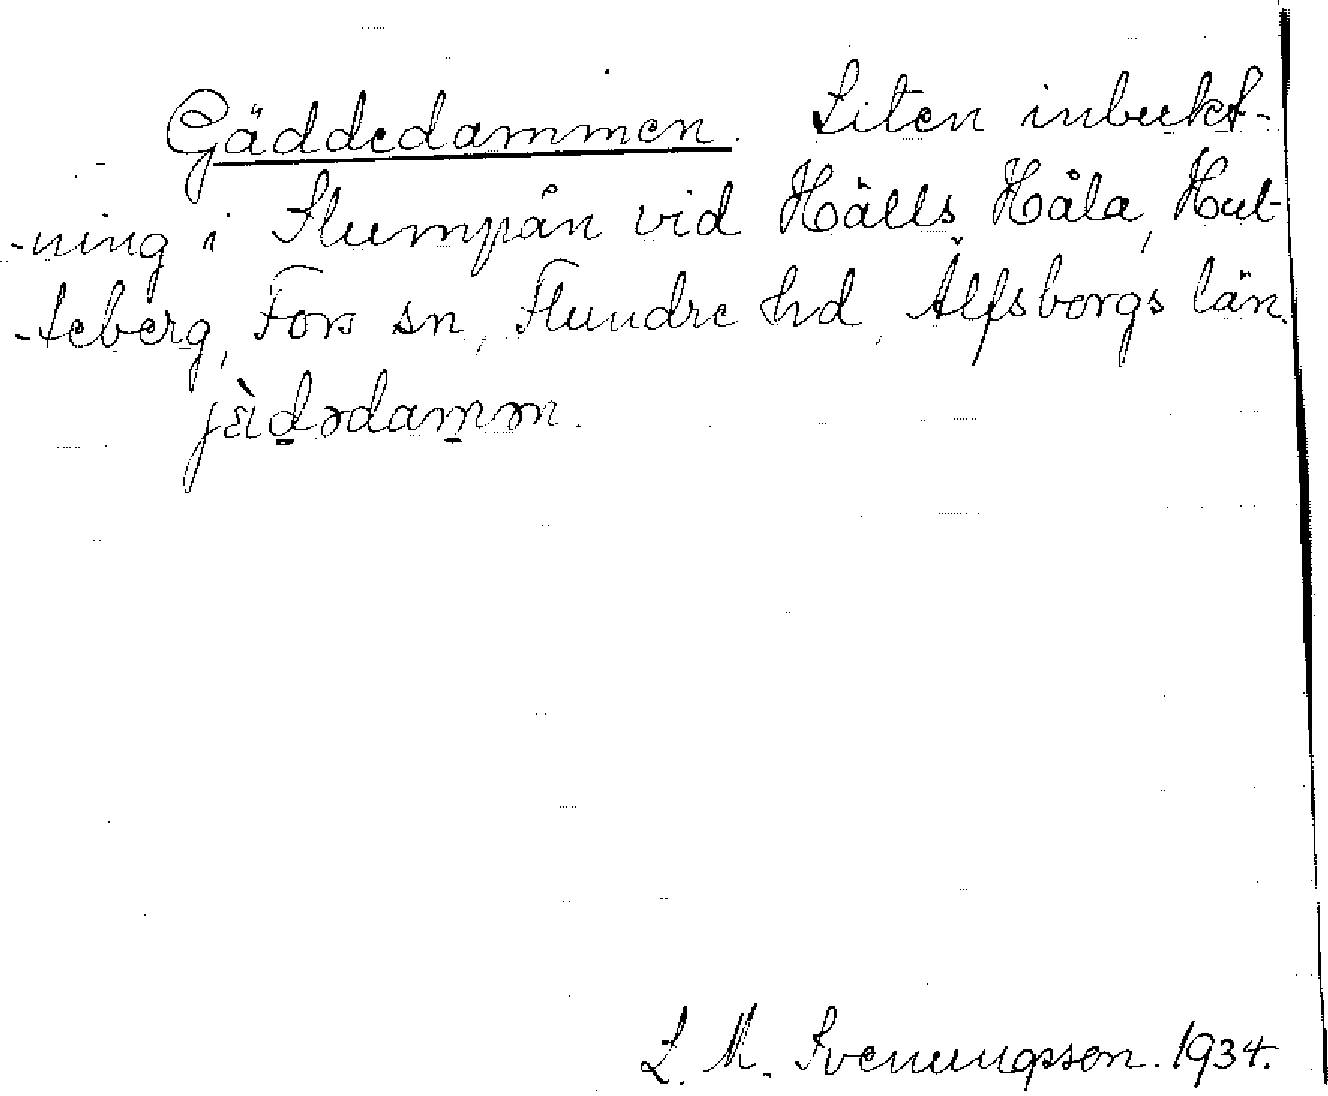 Gäddedammen. Liten inbukt-
-ning i Slumpån vid Hälls Håla, Hul-
-teberg, Fors sn, Flundre hd, Älfsborgs län.
jɛ̀Ɪḏədamm̠əm.
L. M. Svenungsson. 1934.